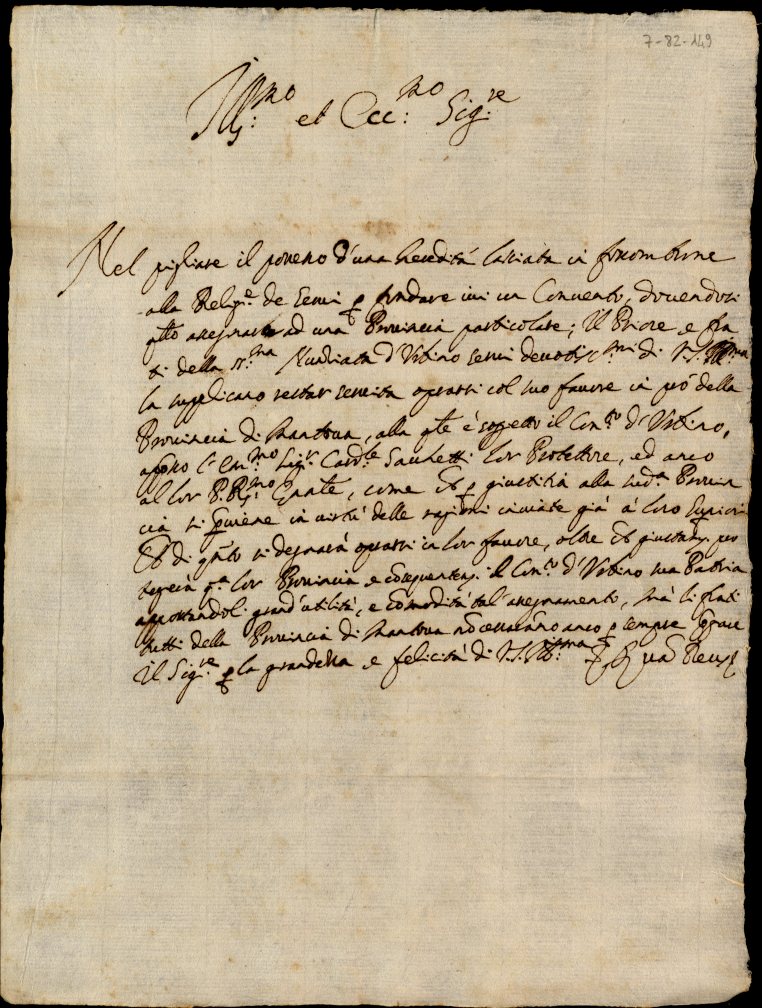 7-82-149
Ill:mo et Ecc:mo Sig:re
Nel pigliare il possesso d'una heredità lasciata in fossombrone
alla Relig.e de Servi p fondare ivi un Convento, dovendosi
qsto assegnarsi ad una Provincia particolare; Il Priore e fra
ti della SS.ma Nuntiata d'Urbino servi devotiss.mi di V.S. Ill.ma
la supplicano restar servita oprarsi col suo favore in prò della
Provincia di Mantova, alla qle è sogetto il Con.to d'Urbino,
apsso l'Em.mo Sig.r Card.le Sacchetti lor Protettore, ed anco
al lor P. R.mo Gnale, come Et p giustitia alla sud.a Provin
cia si pviene in virtù delle ragioni inviate già à loro Supiori
Et di qnto si degnarà oprarsi in lor favore, oltre Et giustam.
q.a lor Provincia e consequentem. il Con.to d'Urbino sua Patria
apportandoli grand'utilità, e comodità tal'assegnamento, mà li frati
tutti della Provincia di Mantova nõ cessarãno anco p sempre pgare
il Sig.re p la grandezza e felicità di V.S. Ill:issima